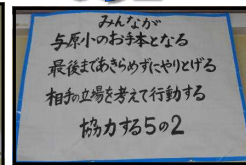 みんなが
与原小のお手本となる
最後まであきらめずにやりとげる
相手の立場を考えて行動する
協力する5の2